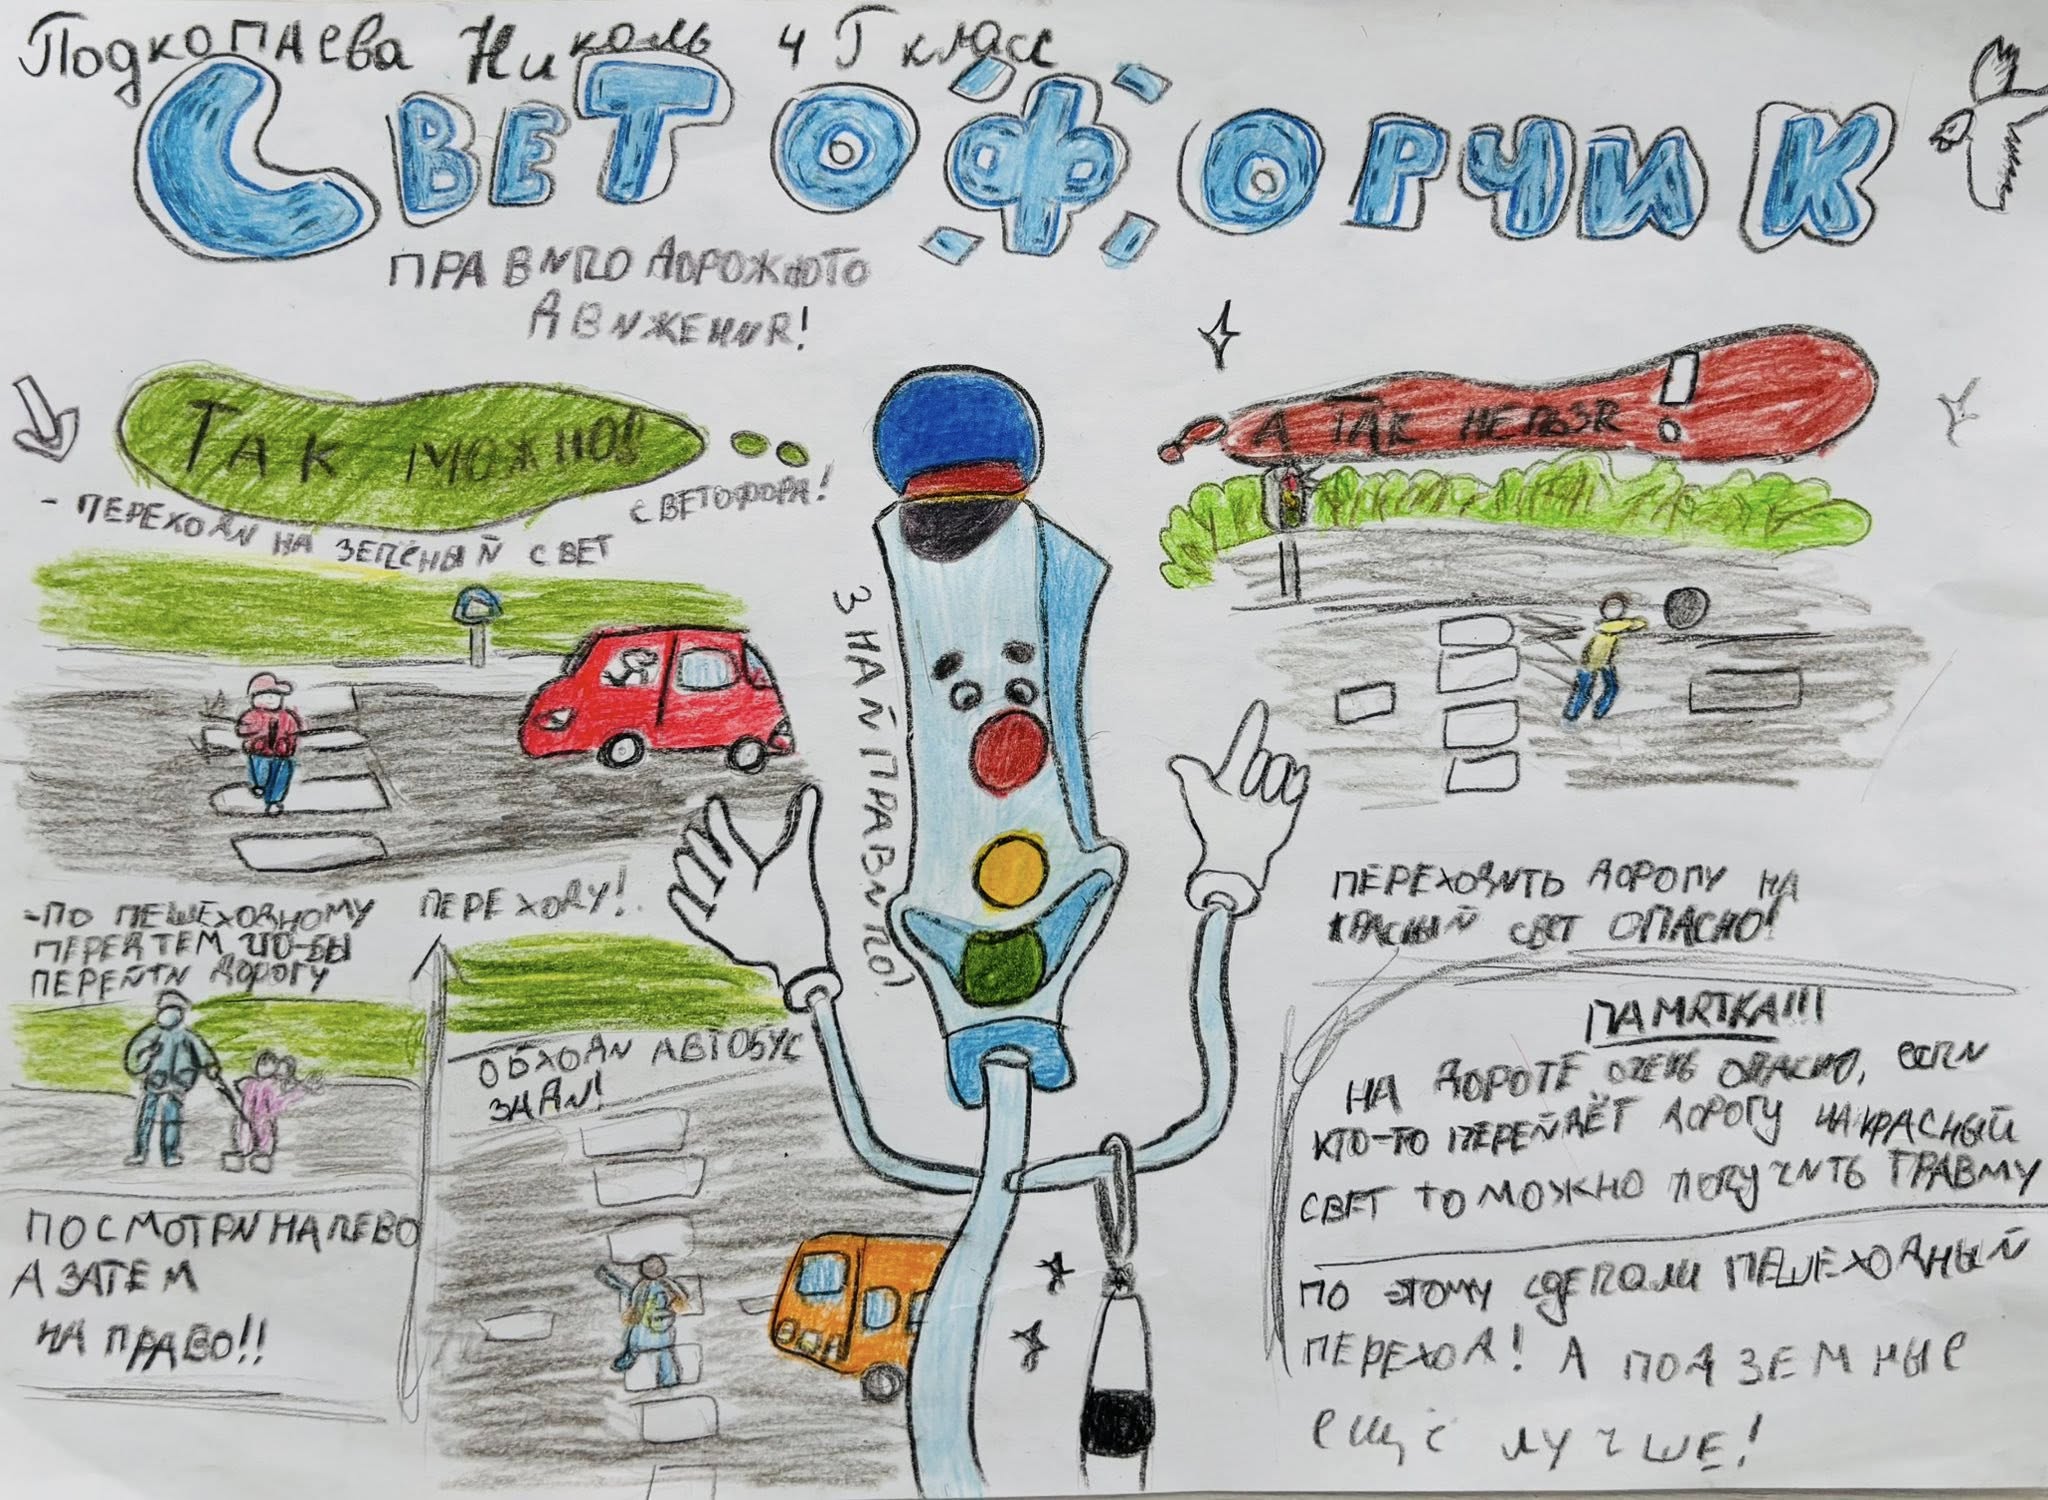 Подкопаева Николь 4 Г класс
СВЕТОФОРЧИК
ПРАВИЛО ДОРОЖНОГО
ДВИЖЕНИЯ!
ТАК МОЖНО!!
- ПЕРЕХОДИ НА ЗЕЛЁНЫЙ СВЕТ
СВЕТОФОРА!
- ПО ПЕШЕХОДНОМУ ПЕРЕХОДУ!
ПЕРЕД ТЕМ ЧТО-БЫ
ПЕРЕЙТИ ДОРОГУ
ПОСМОТРИ НАЛЕВО
А ЗАТЕМ
НА ПРАВО!!
ОБХОДИ АВТОБУС
ЗАДИ!
ЗНАЙ ПРАВИЛО!
А ТАК НЕЛЬЗЯ!
ПЕРЕХОДИТЬ ДОРОГУ НА
КРАСНЫЙ СВЕТ ОПАСНО!
ПАМЯТКА!!!
НА ДОРОГЕ ОЧЕНЬ ОПАСНО, ЕСЛИ
КТО-ТО ПЕРЕЙДЁТ ДОРОГУ НА КРАСНЫЙ
СВЕТ ТО МОЖНО ПОЛУЧИТЬ ТРАВМУ
ПО ЭТОМУ СДЕЛАЛИ ПЕШЕХОДНЫЙ
ПЕРЕХОД! А ПОДЗЕМНЫЕ
ЕЩЁ ЛУЧШЕ!